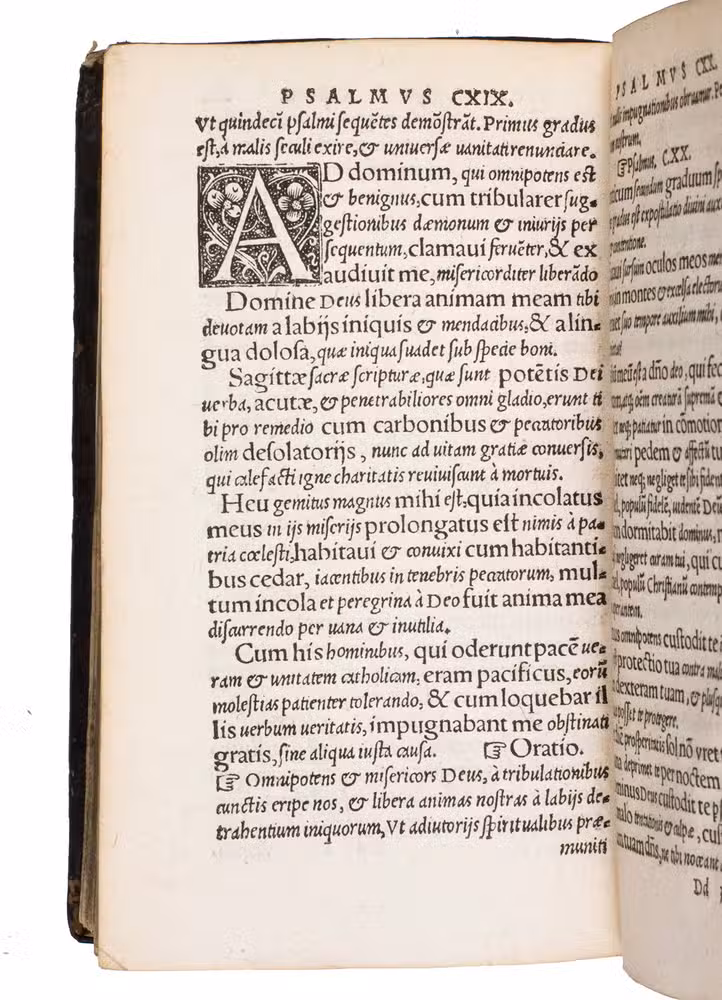 PSALMVS CXIX.
Vt quindecĩ psalmi sequẽtes demõstrãt. Primus gradus
est, à malis seculi exire, & uniuersæ uanitati renunciare.
AD dominum, qui omnipotens est
& benignus, cum tribularer sug-
gestionibus dæmonum & iniurijs per
sequentum, clamaui feruẽter, & ex
audiuit me, misericorditer liberãdo
Domine Deus libera animam meam tibi
deuotam a labijs iniquis & mendacibus, & a lin-
gua dolosa, quæ iniqua suadet sub specie boni.
Sagittæ sacræ scripturæ, quæ sunt potẽtis Dei
uerba, acutæ, & penetrabiliores omni gladio, erunt ti
bi pro remedio cum carbonibus & peccatoribus
olim desolatorijs, nunc ad uitam gratiæ conuersis,
qui calefacti igne charitatis reuiuiscunt à mortuis.
Heu gemitus magnus mihi est, quia incolatus
meus in ijs miserijs prolongatus est nimis à pa-
tria cœlesti, habitaui & conuixi cum habitanti-
bus cedar, iacentibus in tenebris peccatorum, mul-
tum incola et peregrina à Deo fuit anima mea
discurrendo per uana & inutilia.
Cum his hominibus, qui oderunt pacẽ ue-
ram & unitatem catholicam, eram pacificus, eorũ
molestias patienter tolerando, & cum loquebar il
lis uerbum ueritatis, impugnabant me obstinati
gratis, sine aliqua iusta causa. ☞ Oratio.
☞ Omnipotens & misericors Deus, à tribulationibus
cunctis eripe nos, & libera animas nostras à labijs de-
trahentium iniquorum, Vt adiutorijs spiritualibus præ-
muniti
PSALMVS CXX.
impugnationibus obruamur. Pe
nostrum.
☞ Psalmus. CXX.
secundum graduum
gradus est expostulatio diuini auxi
oculos meos
in montes & excelsa
suo tempore auxilium mihi,
est a dño deo, qui fec
suprema &
patiatur in cõmotion
pedem & affectũ tu
negliget te sibi fident
populũ fidelẽ,
dormitabit dominus,
negligeret curam tui, qui cu
populũ Christianũ
omnipotens custodit te
protectio tua contra
dexteram tuam, &
posset te protegere.
prosperitatis sol nõ vret
te per noctem
Deus custodit te
& culpæ,
tuam dñs, ne tibi
Dd